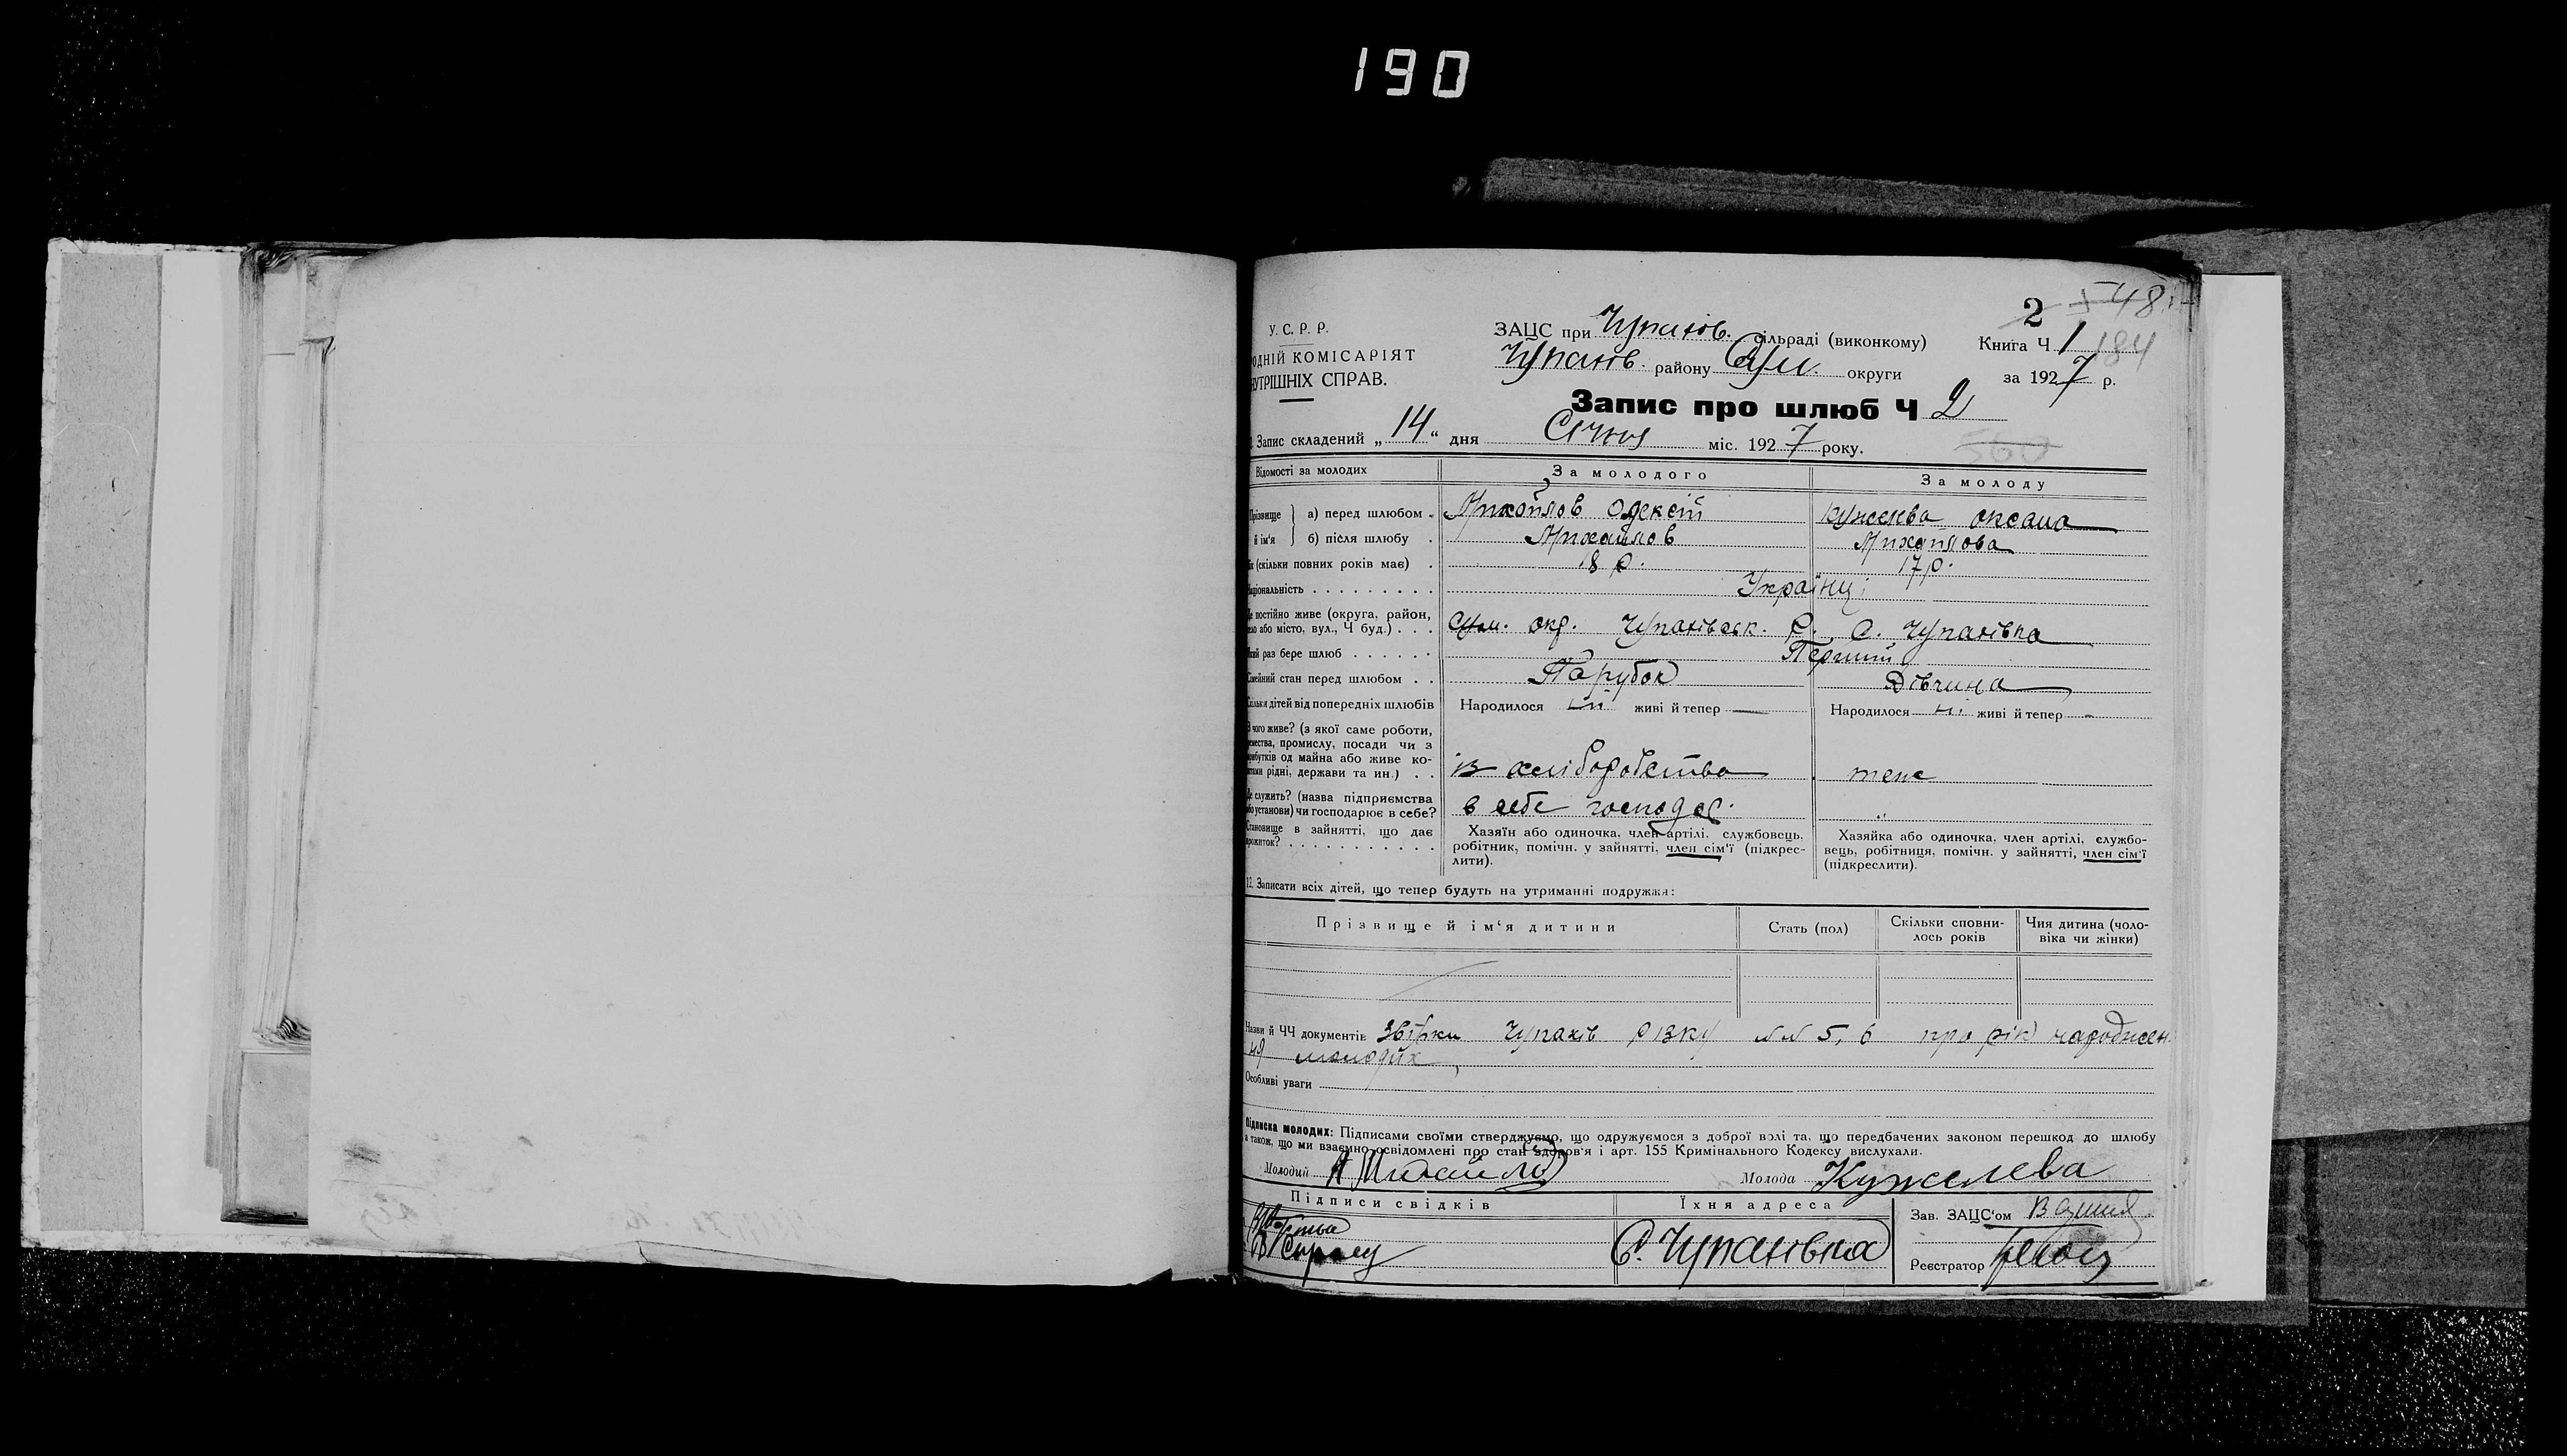 190
2 548
У. С. Р. Р.
ЗАЦС при Чупахів. сільраді (виконкому)
Книга Ч 1 184
ОДНІЙ КОМІСАРІЯТ
Чупахів. району Сум. округи
за 1927 р.
УТРІШНІХ СПРАВ.
Запис про шлюб Ч 2
Запис складений „ 14 “ дня Січня міс. 1927 року.
560
Відомості за молодих
За молодого
За молоду
Прізвище й ім'я
а) перед шлюбом
Михайлов Олексій
Кужелева Оксана
б) після шлюбу
Михайлов
Михайлова
(скільки повних років має)
18 р.
17 р.
Національність
Українці
Де постійно живе (округа, район,
або місто, вул., Ч буд.)
Сум. окр. Чупахівськ. р. С. Чупахівка
раз бере шлюб
Перший
Сімейний стан перед шлюбом
Парубок
Дівчина
Скільки дітей від попередніх шлюбів
Народилося ні живі й тепер —
Народилося ні живі й тепер -
З чого живе? (з якої саме роботи,
ремества, промислу, посади чи з
прибутків од майна або живе ко-
штами рідні, держави та ин.)
із хліборобства
теж
Де служить? (назва підприємства
або установи) чи господарює в себе?
в себе господар.
"
Становище в зайнятті, що дає
прожиток?
Хазяїн або одиночка, член артілі, службовець,
робітник, помічн. у зайнятті, член сім'ї (підкрес-
лити).
Хазяйка або одиночка, член артілі, службо-
вець, робітниця, помічн. у зайнятті, член сім'ї
(підкреслити).
12. Записати всіх дітей, що тепер будуть на утриманні подружжя:
Прізвище й ім‘я дитини
Стать (пол)
Скільки сповни-
лось років
Чия дитина (чоло-
віка чи жінки)
Назви й ЧЧ документів Звірки Чупахів РВЗКу №№ 5, 6 про рік народжен
ня молодих
Особливі уваги
Підписка молодих: Підписами своїми стверджуємо, що одружуємося з доброї волі та, що передбачених законом перешкод до шлюбу
а також, що ми взаємно освідомлені про стан здоров'я і арт. 155 Кримінального Кодексу вислухали.
Молодий А Михайлов
Молода Кужелева
Підписи свідків
Їхня адреса
Зав. ЗАЦС‘ом
С. Чупахівка
Реєстратор